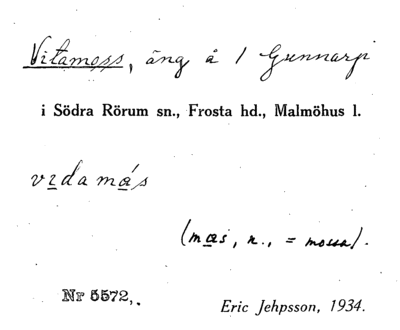 Vitamoss, äng å 1 Gunnarp
i Södra Rörum sn., Frosta hd., Malmöhus l.
vɪdamás
(mas, n., = mossa).
Nr 5572,.
Eric Jehpsson, 1934.